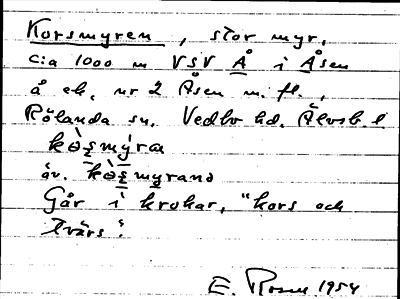 Korsmyren, stor myr,
c:a 1000 m VSV Å i Åsen
å ek. nr 2 Åsen m. fl.,
Rölanda sn. Vedbo hd. Älvsb. l
kòs̱mýra
äv. kòs̱myrano
Går i krokar, "kors och
tvärs".
E. Rosen 1954